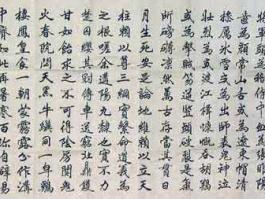 為顏常山舌或為遼東帽清
操厲冰雪或為出師表鬼神泣
壯烈或為渡江楫慷慨吞胡羯
或為擊賊笏逆豎頭破裂是氣
所磅礴凜烈萬古存當其貫日
月生死安足論地維賴以立天
柱賴以尊三綱實繫命道義為
之根嗟余遘陽九隸也實不力
楚囚纓其冠傳車送窮北鼎鑊
甘如飴求之不可得陰房闃鬼
火春院閟天黑牛驥同一皁雞
棲鳳凰食一朝蒙霧露分作溝
中瘠如此再寒暑百沴自辟易